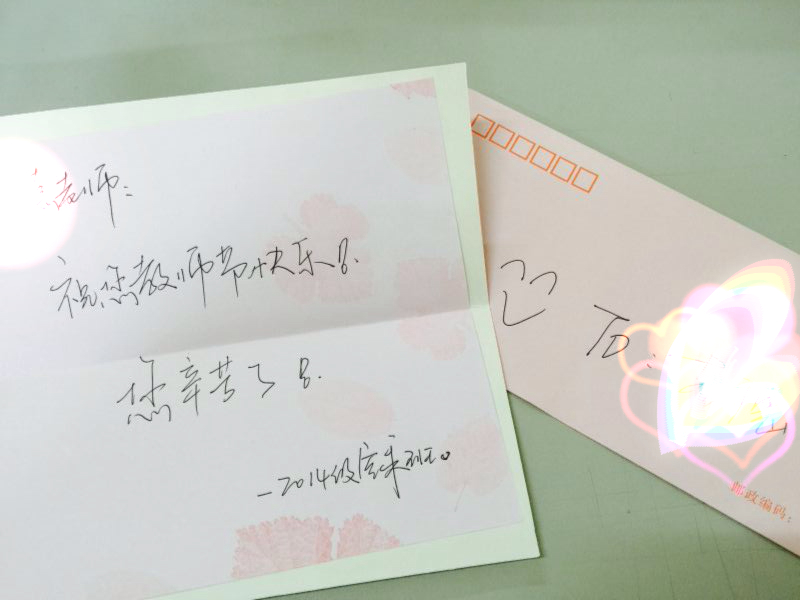 老师:
祝您教师节快乐!
您辛苦了!
—2014级宏采班。
To:
山
邮政编码: